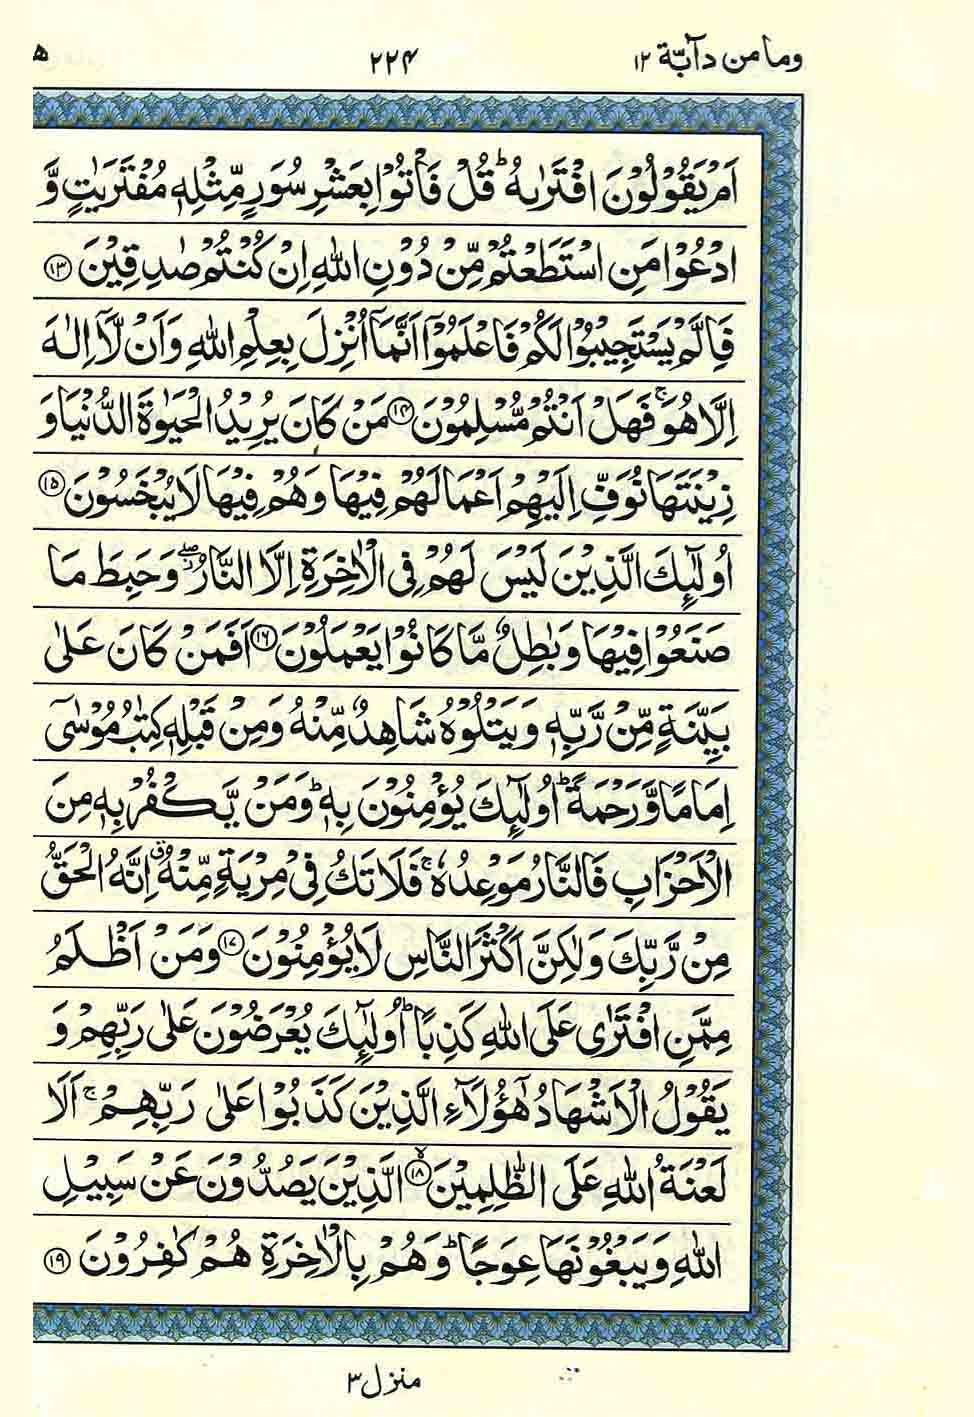 وما من دآبّة ۱۲
۲۲۴
ھ
اَمْ يَقُوْلُوْنَ افْتَرٰىهُ ؕ قُلْ فَاْتُوْا بِعَشْرِ سُوَرٍ مِّثْلِهٖ مُفْتَرَيٰتٍ وَّ
ادْعُوْا مَنِ اسْتَطَعْتُمْ مِّنْ دُوْنِ اللّٰهِ اِنْ كُنْتُمْ صٰدِقِيْنَ ۝۱۳
فَاِلَّمْ يَسْتَجِيْبُوْا لَكُمْ فَاعْلَمُوْۤا اَنَّمَاۤ اُنْزِلَ بِعِلْمِ اللّٰهِ وَاَنْ لَّاۤ اِلٰهَ
اِلَّا هُوَ ۚ فَهَلْ اَنْتُمْ مُّسْلِمُوْنَ ۝۱۴ مَنْ كَانَ يُرِيْدُ الْحَيٰوةَ الدُّنْيَا وَ
زِيْنَتَهَا نُوَفِّ اِلَيْهِمْ اَعْمَالَهُمْ فِيْهَا وَهُمْ فِيْهَا لَا يُبْخَسُوْنَ ۝۱۵
اُولٰٓئِكَ الَّذِيْنَ لَيْسَ لَهُمْ فِى الْاٰخِرَةِ اِلَّا النَّارُ ۖ وَحَبِطَ مَا
صَنَعُوْا فِيْهَا وَبٰطِلٌ مَّا كَانُوْا يَعْمَلُوْنَ ۝۱۶ اَفَمَنْ كَانَ عَلٰى
بَيِّنَةٍ مِّنْ رَّبِّهٖ وَيَتْلُوْهُ شَاهِدٌ مِّنْهُ وَمِنْ قَبْلِهٖ كِتٰبُ مُوْسٰۤى
اِمَامًا وَّرَحْمَةً ؕ اُولٰٓئِكَ يُؤْمِنُوْنَ بِهٖ ؕ وَمَنْ يَّكْفُرْ بِهٖ مِنَ
الْاَحْزَابِ فَالنَّارُ مَوْعِدُهٗ ۚ فَلَا تَكُ فِىْ مِرْيَةٍ مِّنْهُ ۗ اِنَّهُ الْحَقُّ
مِنْ رَّبِّكَ وَلٰكِنَّ اَكْثَرَ النَّاسِ لَا يُؤْمِنُوْنَ ۝۱۷ وَمَنْ اَظْلَمُ
مِمَّنِ افْتَرٰى عَلَى اللّٰهِ كَذِبًا ؕ اُولٰٓئِكَ يُعْرَضُوْنَ عَلٰى رَبِّهِمْ وَ
يَقُوْلُ الْاَشْهَادُ هٰۤؤُلَآءِ الَّذِيْنَ كَذَبُوْا عَلٰى رَبِّهِمْ ۚ اَلَا
لَعْنَةُ اللّٰهِ عَلَى الظّٰلِمِيْنَ ۝۱۸ الَّذِيْنَ يَصُدُّوْنَ عَنْ سَبِيْلِ
اللّٰهِ وَيَبْغُوْنَهَا عِوَجًا ؕ وَهُمْ بِالْاٰخِرَةِ هُمْ كٰفِرُوْنَ ۝۱۹
منزل ۳